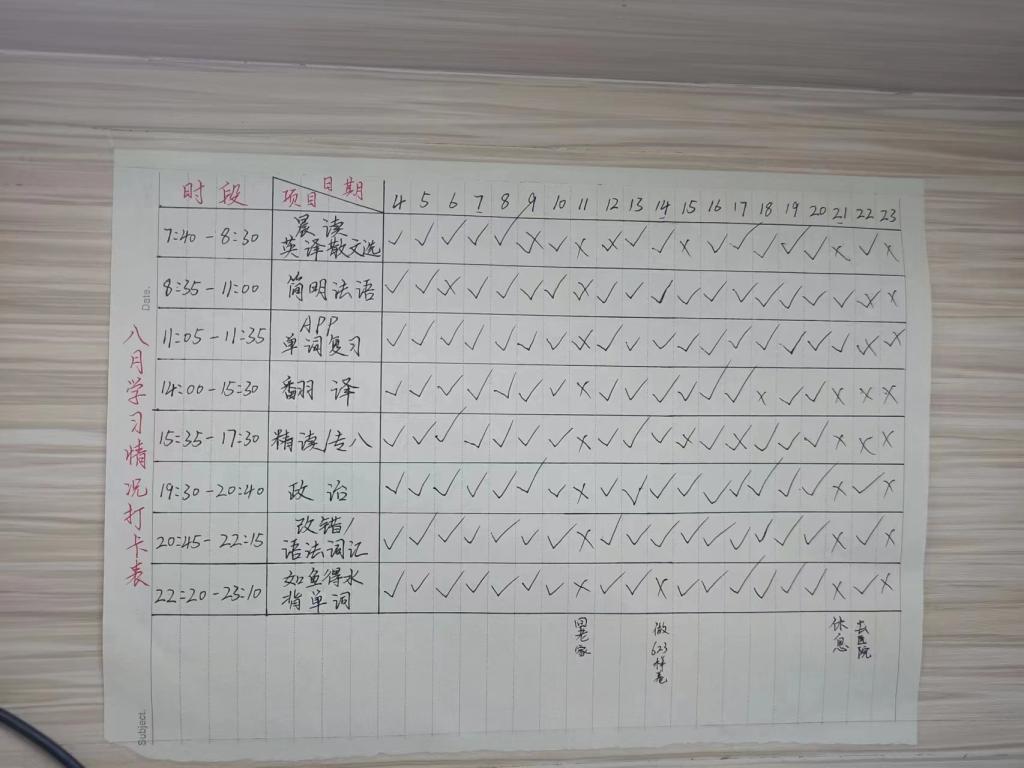 时段 项目 日期 4 5 6 7 8 9 10 11 12 13 14 15 16 17 18 19 20 21 22 23
7:40-8:30 晨读 ✓ ✓ ✓ ✓ ✓ × ✓ × × ✓ ✓ × ✓ ✓ ✓ ✓ ✓ × ✓ ×
英译散文选
8:35-11:00 简明法语 ✓ ✓ × ✓ ✓ ✓ ✓ × ✓ ✓ ✓ ✓ ✓ ✓ ✓ ✓ ✓ ✓ × ×
APP
11:05-11:35 单词复习 ✓ ✓ ✓ ✓ ✓ ✓ ✓ × ✓ ✓ ✓ ✓ ✓ ✓ ✓ ✓ ✓ ✓ × ×
14:00-15:30 翻译 ✓ ✓ ✓ ✓ ✓ ✓ ✓ × ✓ ✓ ✓ ✓ ✓ ✓ × ✓ ✓ × × ×
15:35-17:30 精读/专八 ✓ ✓ ✓ ✓ ✓ ✓ ✓ × ✓ ✓ ✓ × ✓ × ✓ ✓ ✓ × × ×
19:30-20:40 政治 ✓ ✓ ✓ ✓ ✓ ✓ ✓ × ✓ ✓ ✓ ✓ ✓ ✓ ✓ ✓ ✓ × ✓ ×
改错/
20:45-22:15 语法词记 ✓ ✓ ✓ ✓ ✓ ✓ ✓ × ✓ ✓ ✓ ✓ ✓ ✓ ✓ ✓ ✓ × ✓ ×
如鱼得水
22:20-23:10 背单词 ✓ ✓ ✓ ✓ ✓ ✓ ✓ × ✓ ✓ × ✓ ✓ ✓ ✓ ✓ ✓ × ✓ ×
回老家
做623样卷
休息
去医院
八月学习情况打卡表
Date.
Subject.